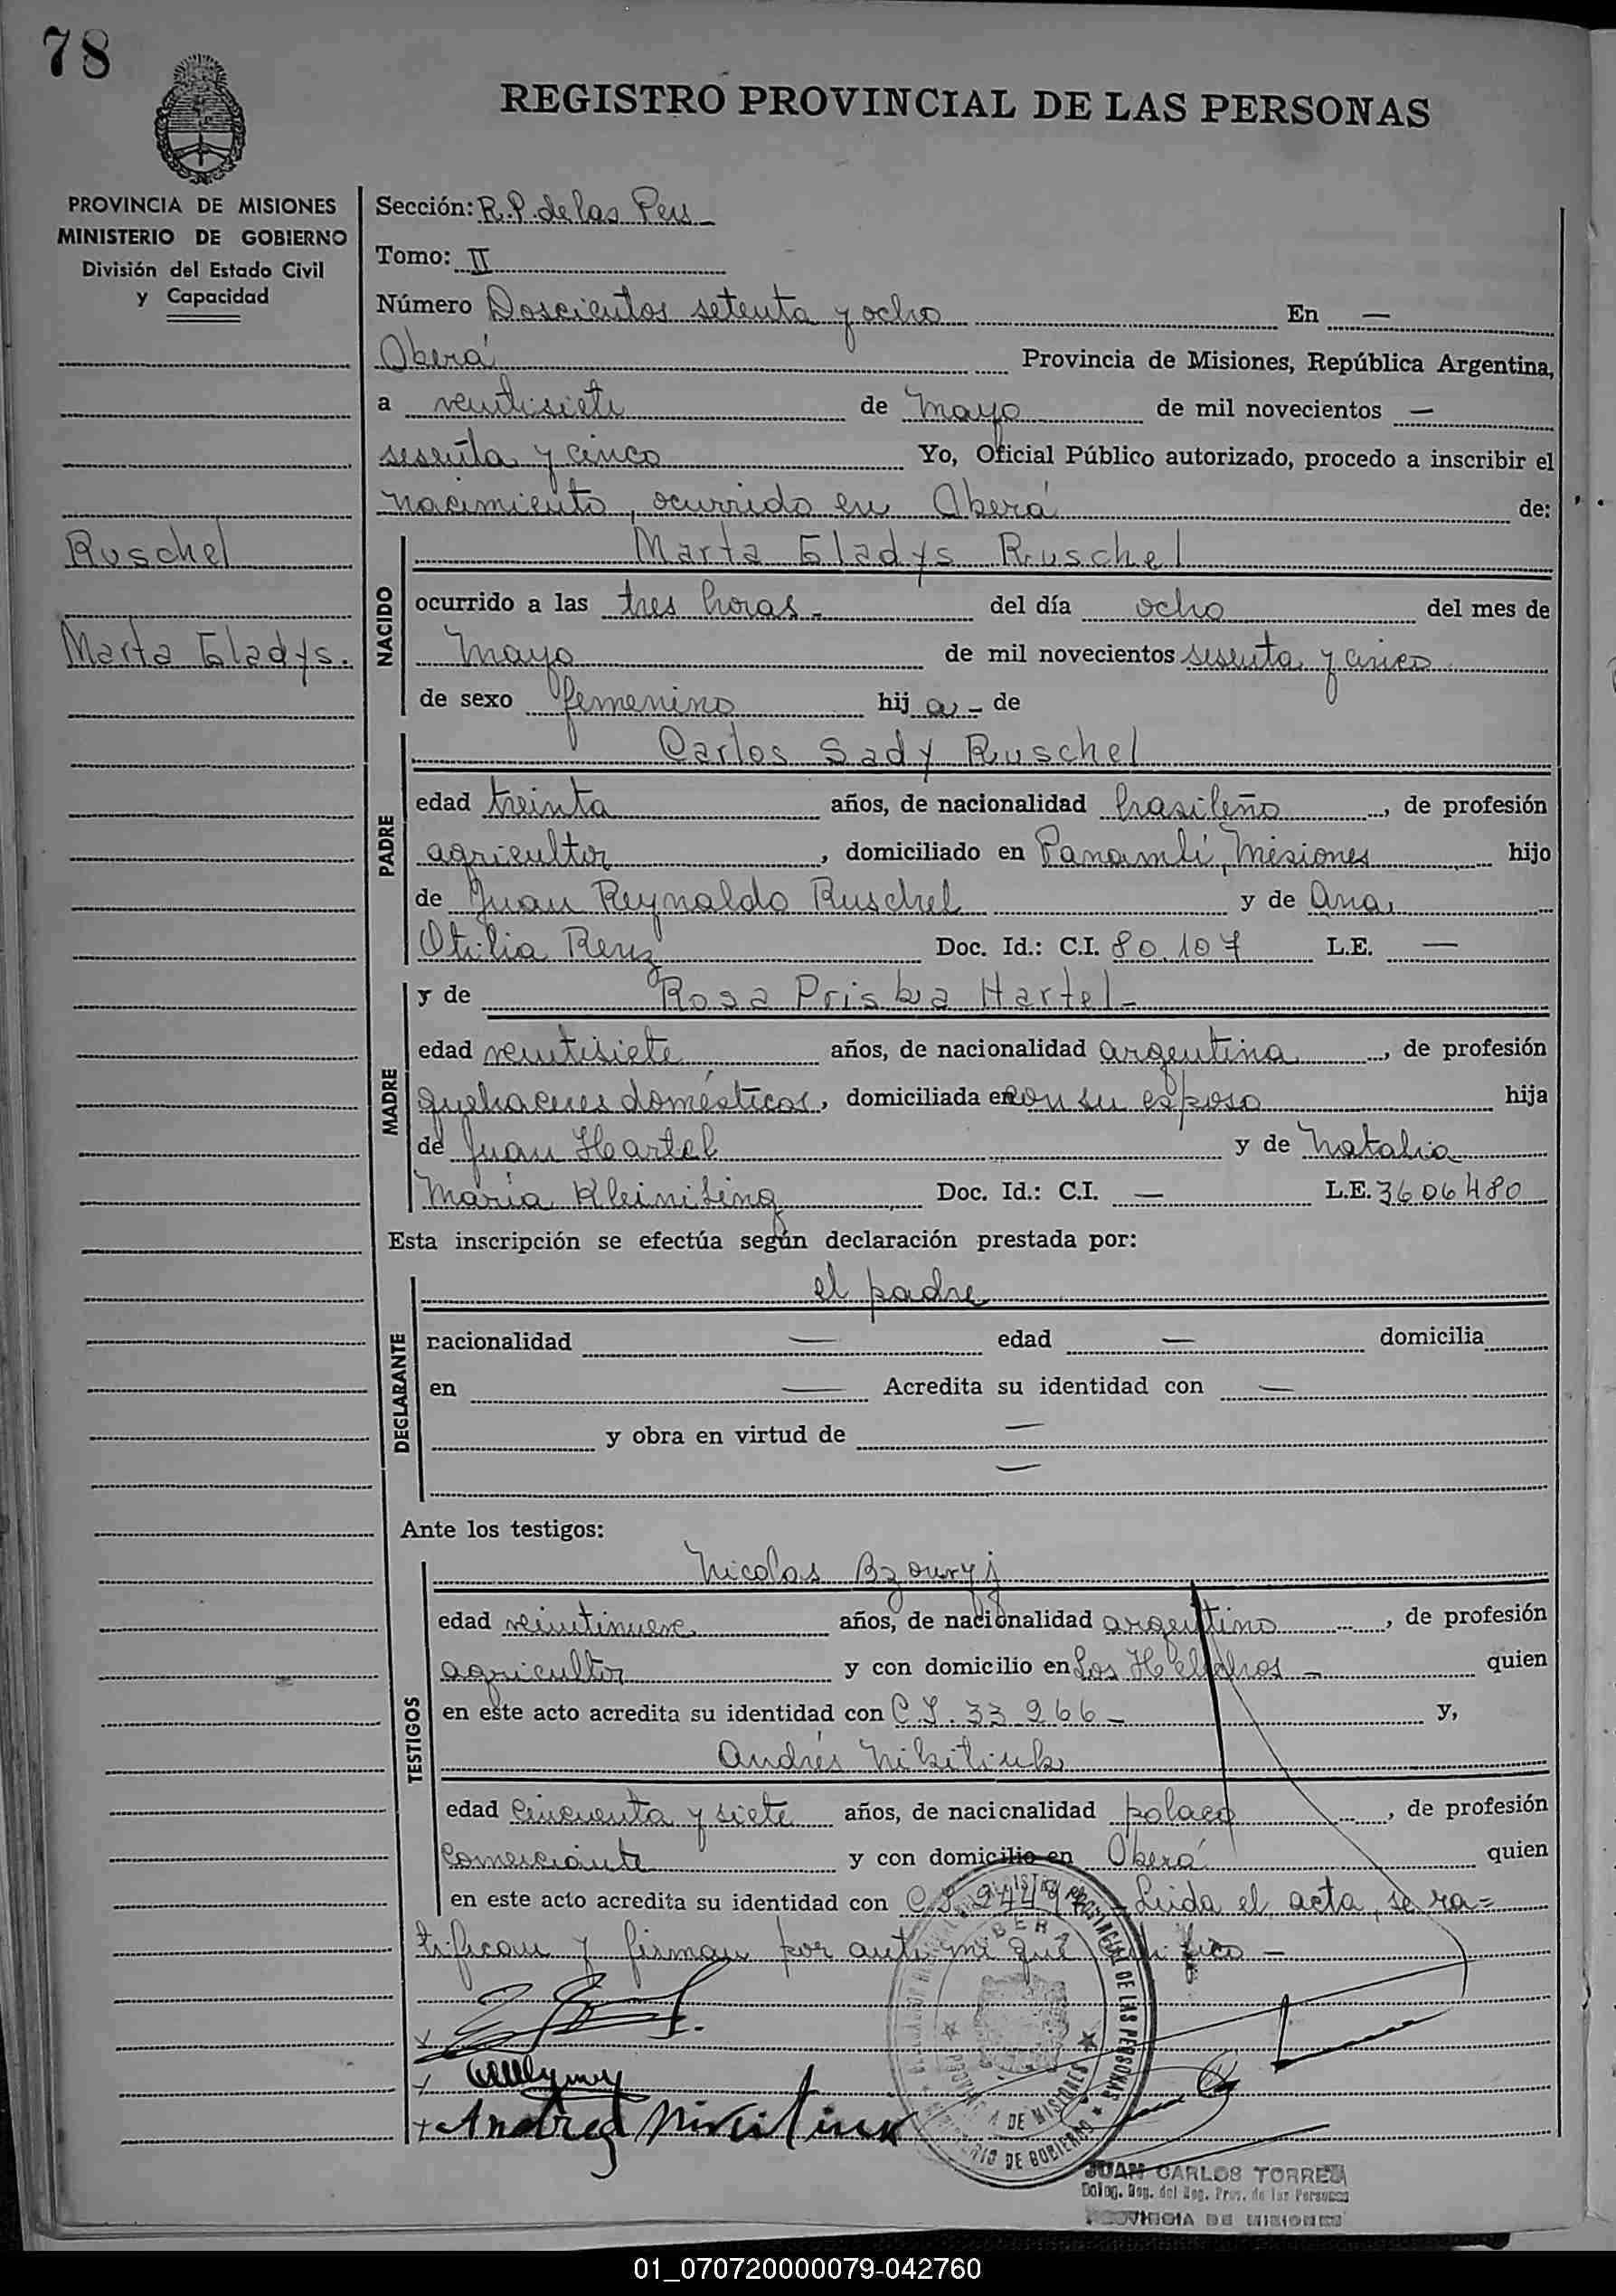 78
REGISTRO PROVINCIAL DE LAS PERSONAS
PROVINCIA DE MISIONES
MINISTERIO DE GOBIERNO
División del Estado Civil
y Capacidad
Ruschel
Marta Gladys.
Sección: R.P. de las Pers
Tomo: II
Número Doscientos setenta y ocho En —
Oberá Provincia de Misiones, República Argentina,
a ventisiete de mayo de mil novecientos —
sesenta y cinco Yo, Oficial Público autorizado, procedo a inscribir el
nacimiento, ocurrido en Oberá de:
NACIDO
Marta Gladys Ruschel
ocurrido a las tres horas - del día ocho del mes de
mayo de mil novecientos sesenta y cinco
de sexo femenino hij a - de
PADRE
Carlos Sady Ruschel
edad treinta años, de nacionalidad brasileño, de profesión
agricultor, domiciliado en Panambí, Misiones hijo
de Juan Reynaldo Ruschel y de Ana
Otilia Renz Doc. Id.: C.I. 80.107 L.E. —
MADRE
y de Rosa Priska Hartel -
edad ventisiete años, de nacionalidad argentina, de profesión
quehaceres domésticos, domiciliada en con su esposo hija
de Juan Hartel y de Natalia
María Doc. Id.: C.I. — L.E. 3606480
Esta inscripción se efectúa según declaración prestada por:
DECLARANTE
el padre
nacionalidad — edad — domicilia
en — Acredita su identidad con —
y obra en virtud de —
—
Ante los testigos:
TESTIGOS
Nicolas
edad veintinueve años, de nacionalidad argentino, de profesión
agricultor y con domicilio en Los Helechos - quien
en este acto acredita su identidad con C.I. 33.266 - y,
Andrés Nikitiuk
edad cincuenta y siete años, de nacionalidad polaco, de profesión
comerciante y con domicilio en Oberá quien
en este acto acredita su identidad con C.I. Leida el acta, se ra=
tifican y firman por ante mi que certifico -
Andres Nikitiuk
REGISTRO PROVINCIAL DE LAS PERSONAS
OBERA
MINISTERIO DE GOBIERNO
JUAN CARLOS TORRES
PROVINCIA DE MISIONES
01_070720000079-042760